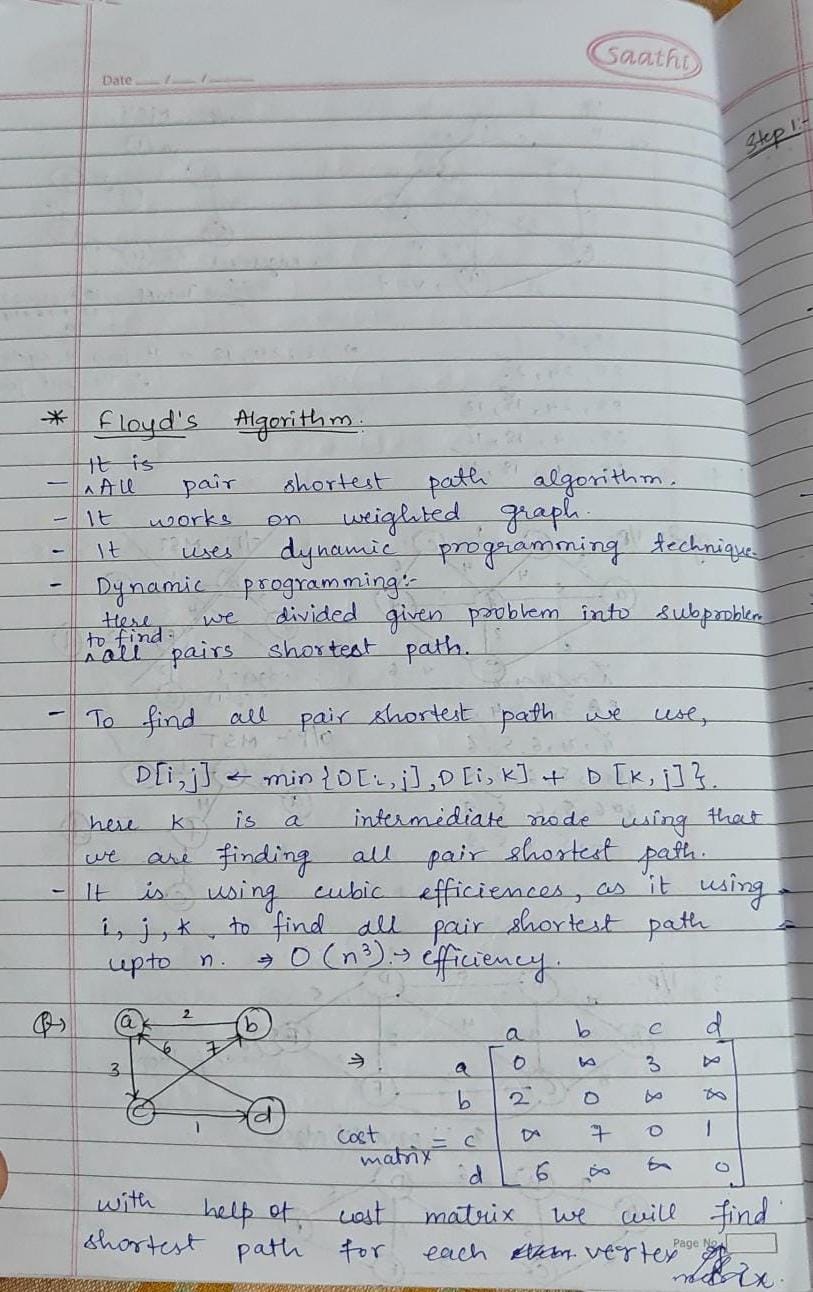 saathi
Date __/__/__
Step 1:-
* Floyd's Algorithm.
It is
- ^ All pair shortest path algorithm.
- It works on weighted graph.
- It uses dynamic programming technique.
- Dynamic programming:-
Here we divided given problem into subproblem
to find.
^ all pairs shortest path.
- To find all pair shortest path we use,
D[i,j] ← min {D[i,j], D[i,k] + D[k,j]}.
here k is a intermediate node using that
we are finding all pair shortest path.
- It is using cubic efficiences, as it using
i, j, k, to find all pair shortest path
upto n. ⇒ O(n³) → efficiency.
Q→
a 2 b
3 6 7
c 1 d
⇒
a b c d
a 0 ∞ 3 ∞
b 2 0 ∞ ∞
cost matrix = c ∞ 7 0 1
d 6 ∞ ∞ 0
with help of cost matrix we will find
shortest path for each vertex
matrix.
Page No.